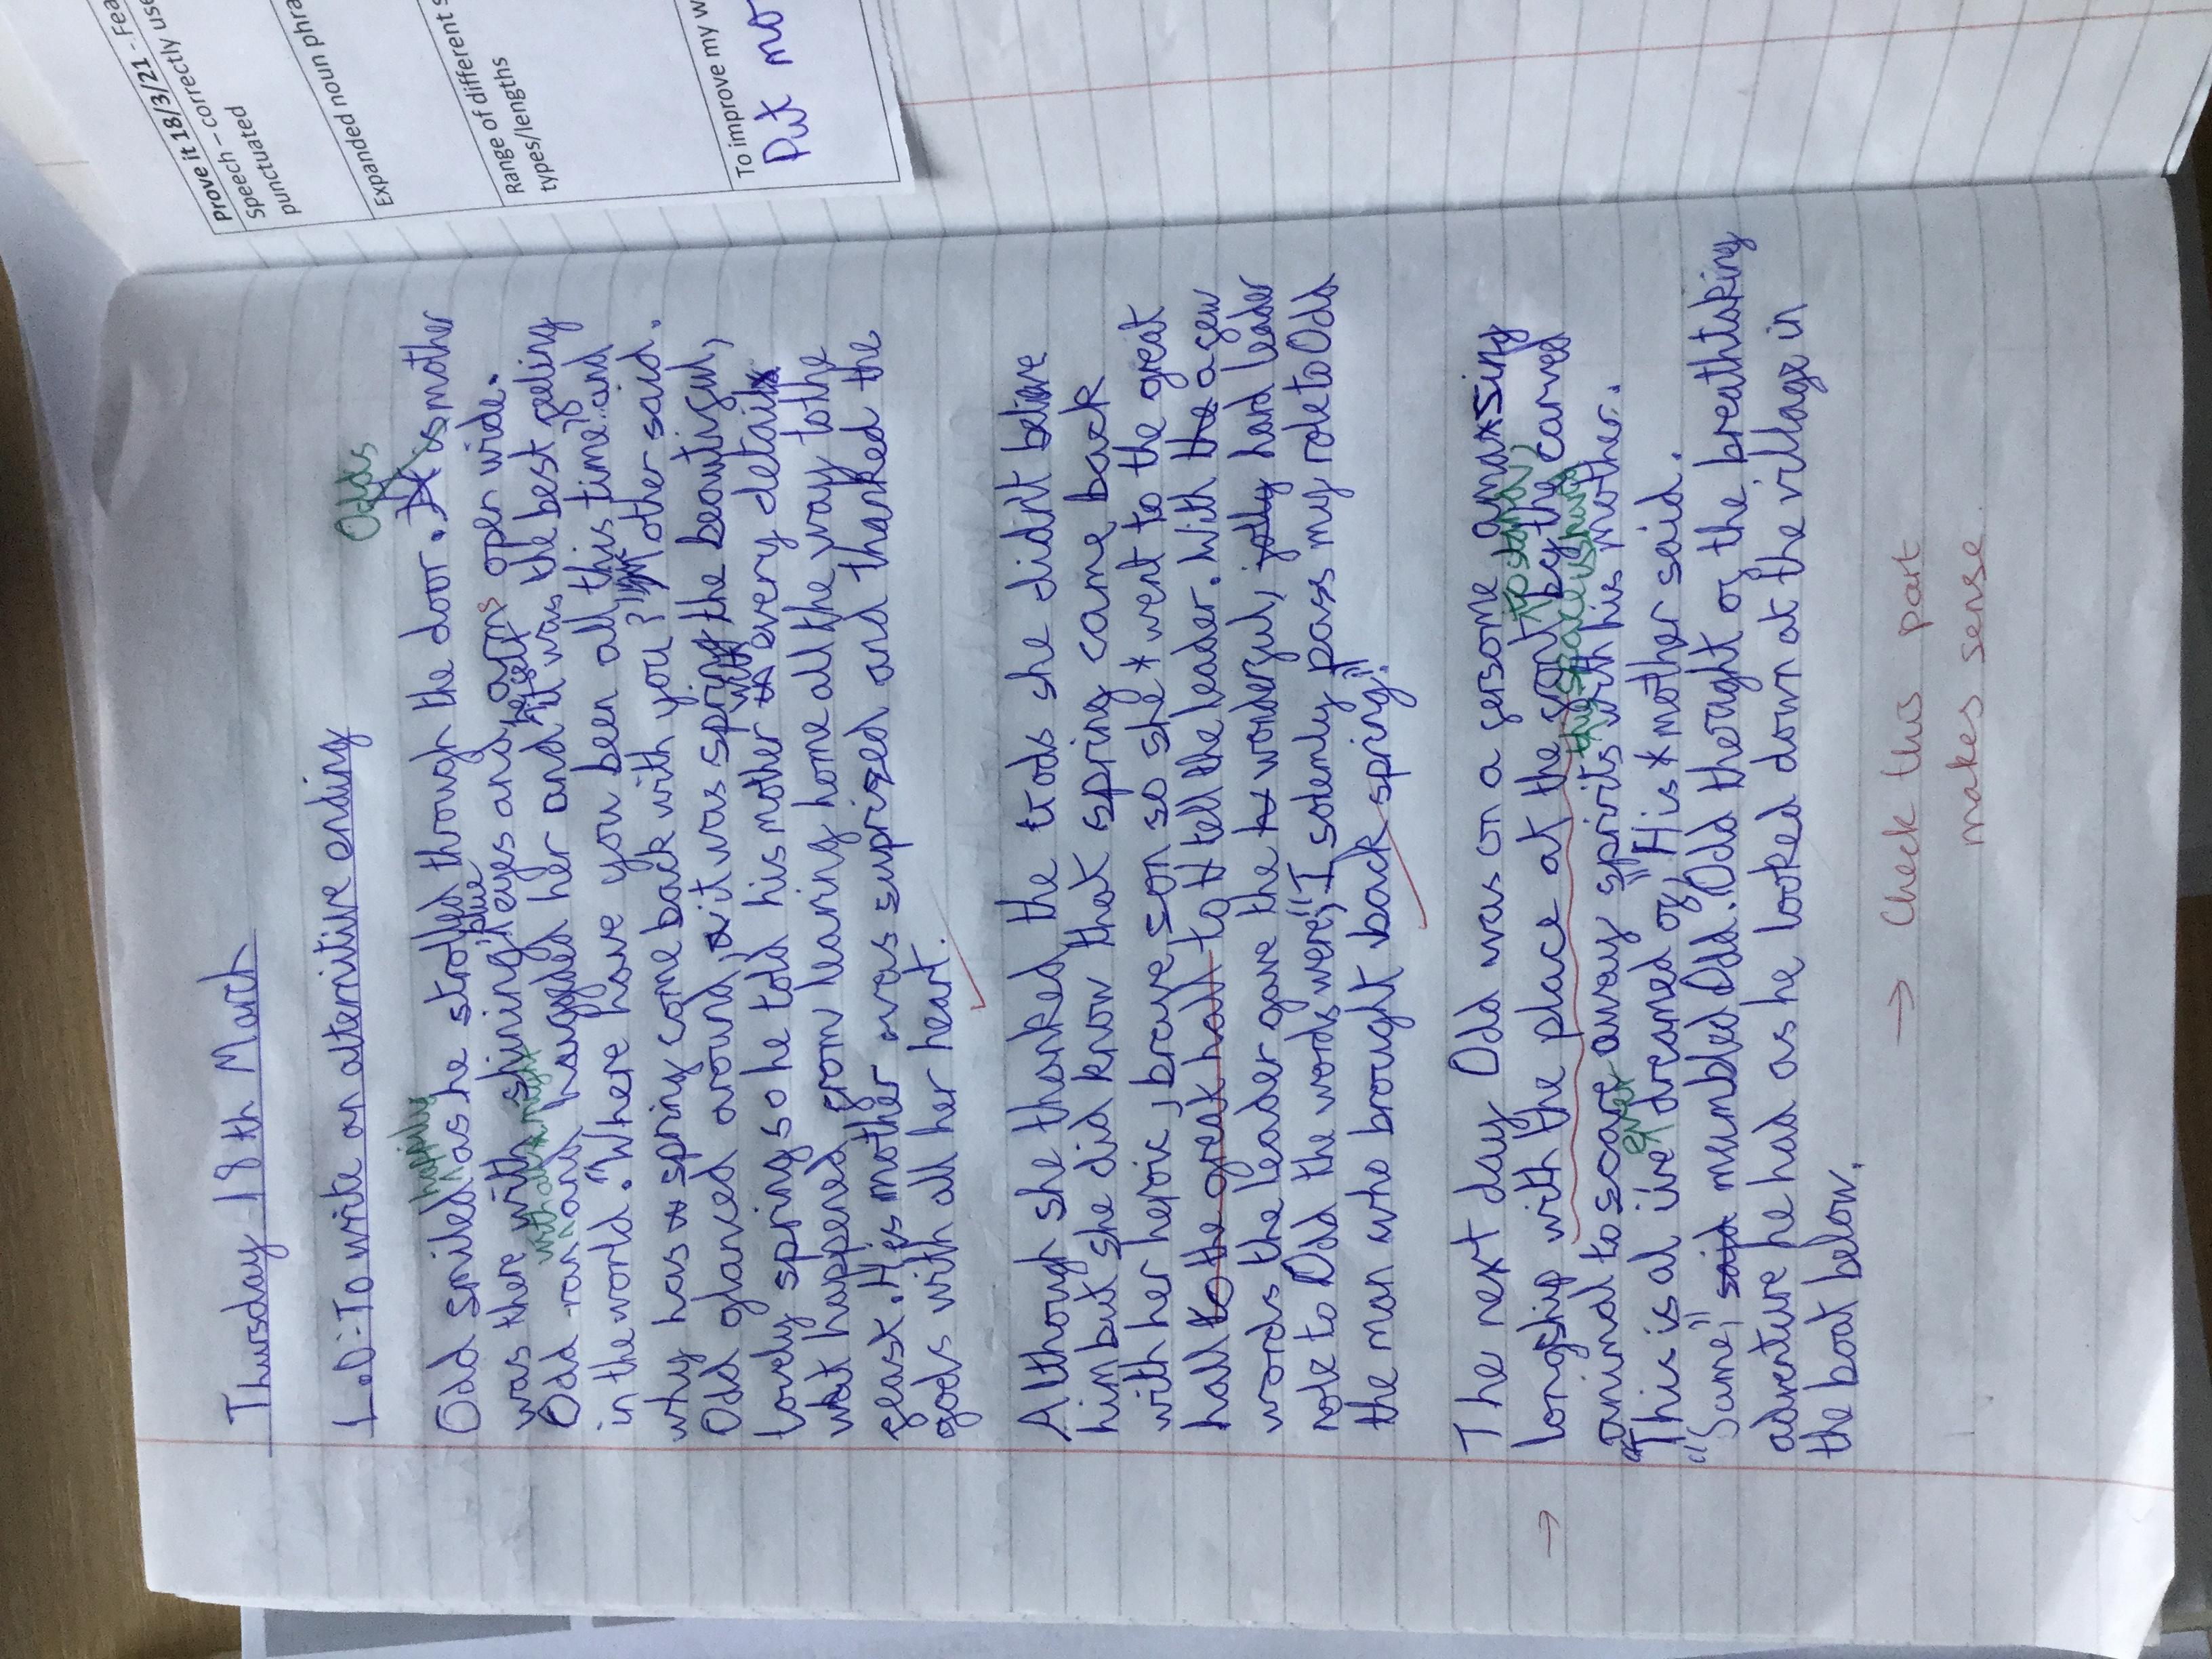 Thursday 18th March
L.O:To write an alternitive ending
Odds
Odd smiled happily as he strolled through the door. His mother
was there with shining, blue eyes and arms open wide.
Odd ran with all his might and hugged her and it was the best feeling
in the world. "Where have you been all this time" and
why has spring come back with you?" Mother said.
Odd glanced around, it was spring the beautiful,
lovely spring so he told his mother with every detail
what happened from leaving home all the way to the
feast. His mother was suprized and thanked the
gods with all her heart.
Although she thanked the gods she didn't believe
him but she did know that spring came back
with her heroic, brave son so she went to the great
hall to the great hall to tell the leader. With the a few
words the leader gave the wonderful, jolly hard leader
role to Odd the words were, "I solemly pass my role to Odd
the man who brought back spring".
The next day Odd was on a fersome amasing
longship with the place at the front to stand, by the carved
animal to scare away spirits with his mother.
"This is al iive ever dreamed of," His mother said.
"Same," said mumbled Odd. Odd thought of the breathtaking
adventure he had as he looked down at the village in
the boat below.
→
→ Check this part
makes sense
Prove it 18/3/21 - Fea
Speech – correctly use
punctuated
Expanded noun phra
Range of different s
types/lengths
To improve my w
Put mo